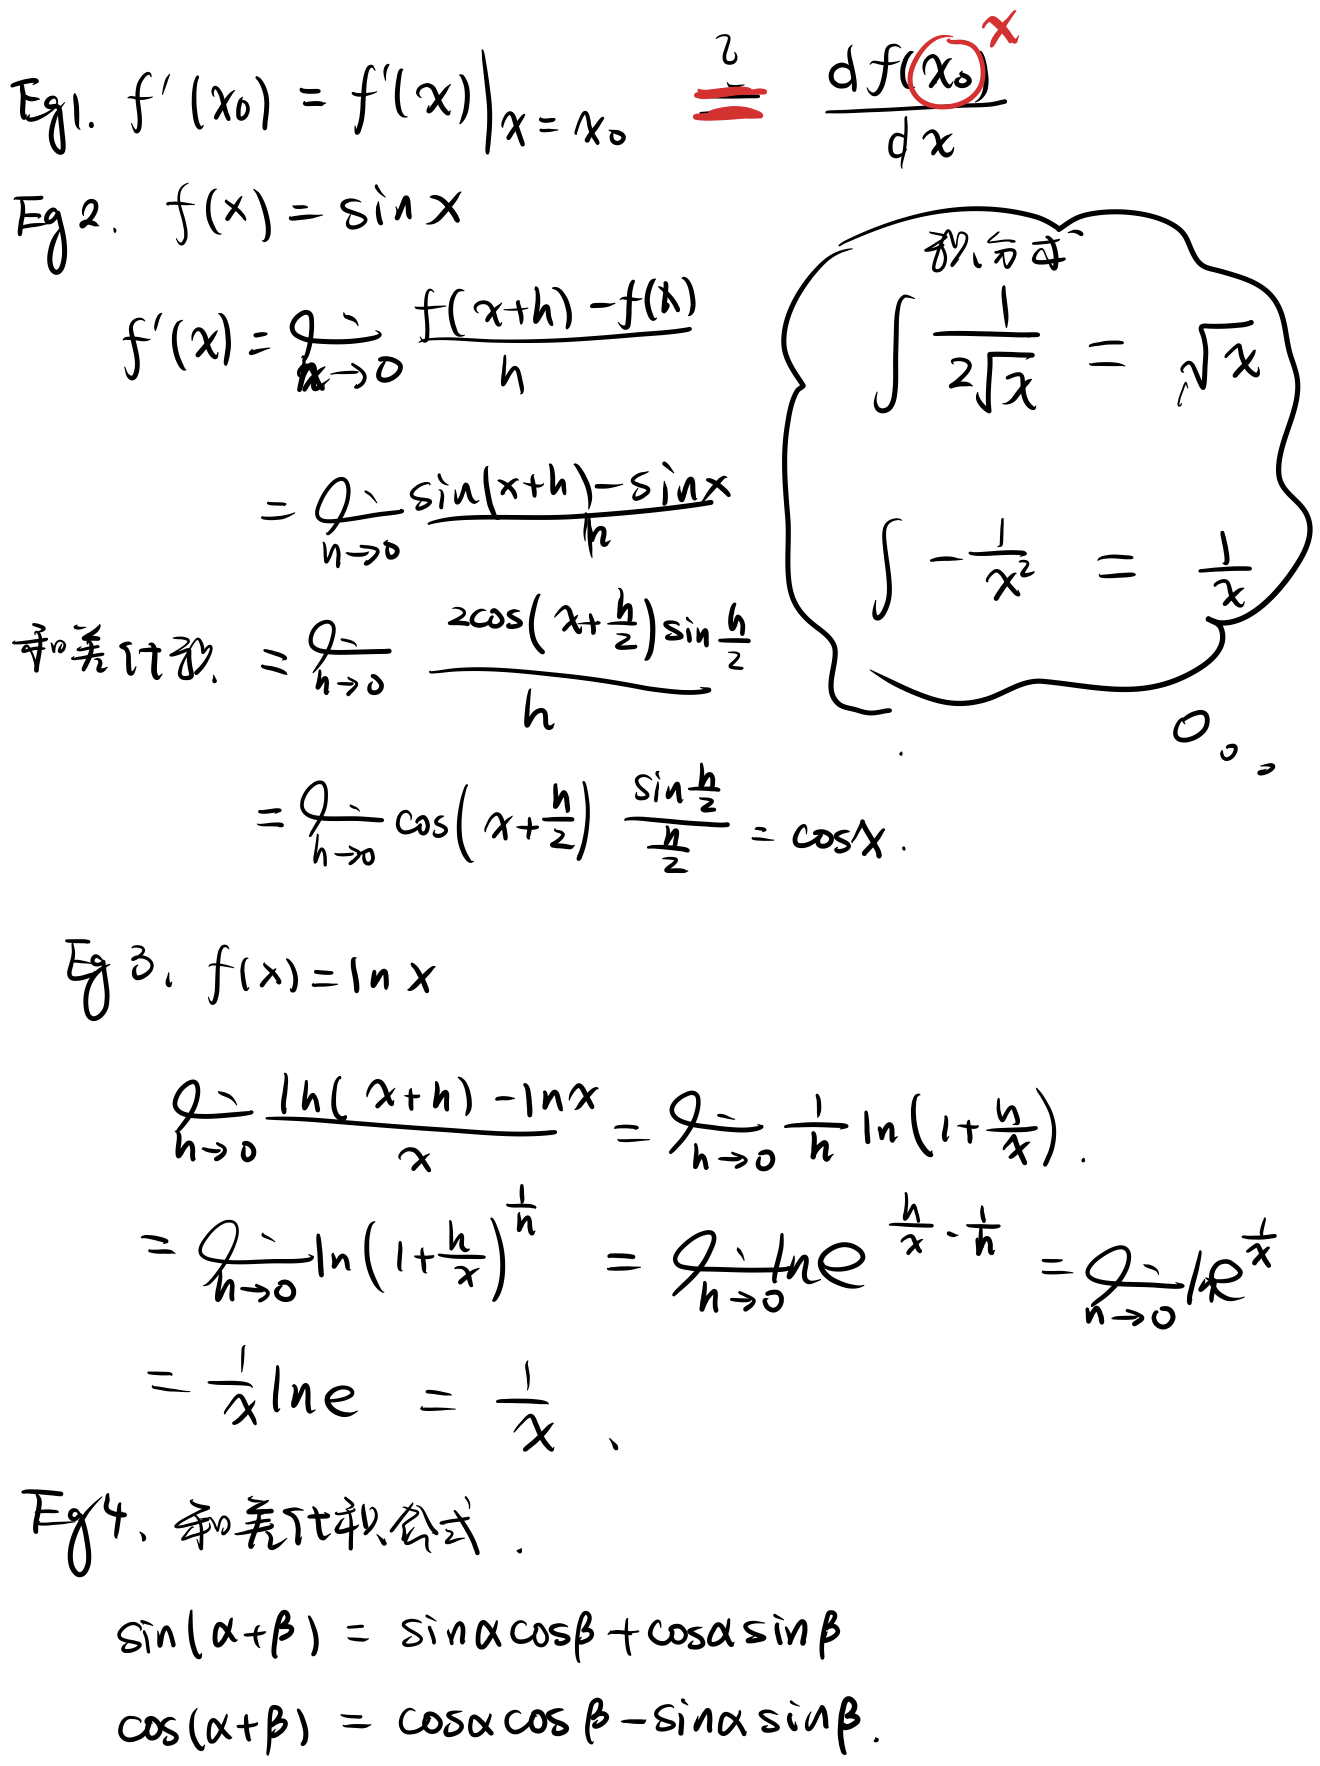 Eg1. f'(x₀) = f'(x)|ₓ₌ₓ₀ ≟ df(x₀)/dx x
Eg2. f(x) = sin x
f'(x) = lim h→0 (f(x+h) - f(x))/h
= lim h→0 (sin(x+h) - sin x)/h
和差化积. = lim h→0 (2cos(x+h/2) sin h/2)/h
= lim h→0 cos(x+h/2) (sin h/2)/(h/2) = cos x.
积分式
∫ 1/(2√x) = √x
∫ -1/x² = 1/x
Eg3. f(x) = ln x
lim h→0 (ln(x+h) - ln x)/x = lim h→0 1/h ln(1+h/x).
= lim h→0 ln(1+h/x)^(1/h) = lim h→0 ln e^(h/x · 1/h) = lim h→0 ln e^(1/x)
= 1/x ln e = 1/x 、
Eg4、和差化积公式.
sin(α+β) = sinαcosβ + cosαsinβ
cos(α+β) = cosαcosβ - sinαsinβ.